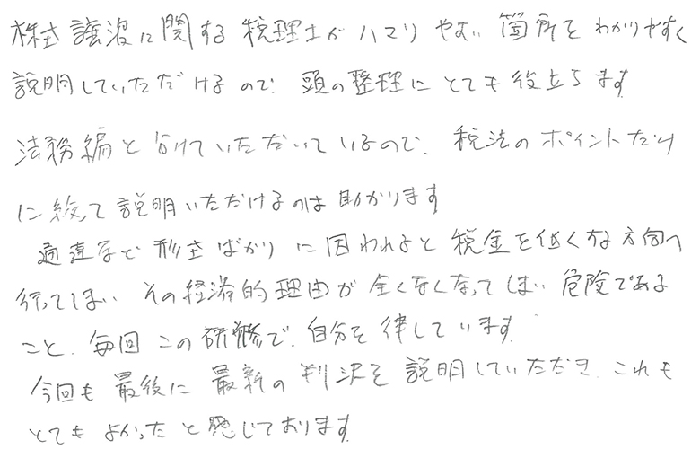 株式譲渡に関する税理士がハマリやすい箇所をわかりやすく
説明していただけるので、頭の整理にとても役立ちます
法務編と分けていただいているので、税法のポイントだけ
に絞って説明いただけるのは助かります
通達など形式ばかりに囚われると税金を低くする方向へ
行ってしまい その経済的理由が全くなくなってしまい 危険である
こと、毎回この研修で、自分を律しています。
今回も最後に最新の判決を説明していただき、これも
とてもよかったと感じております。